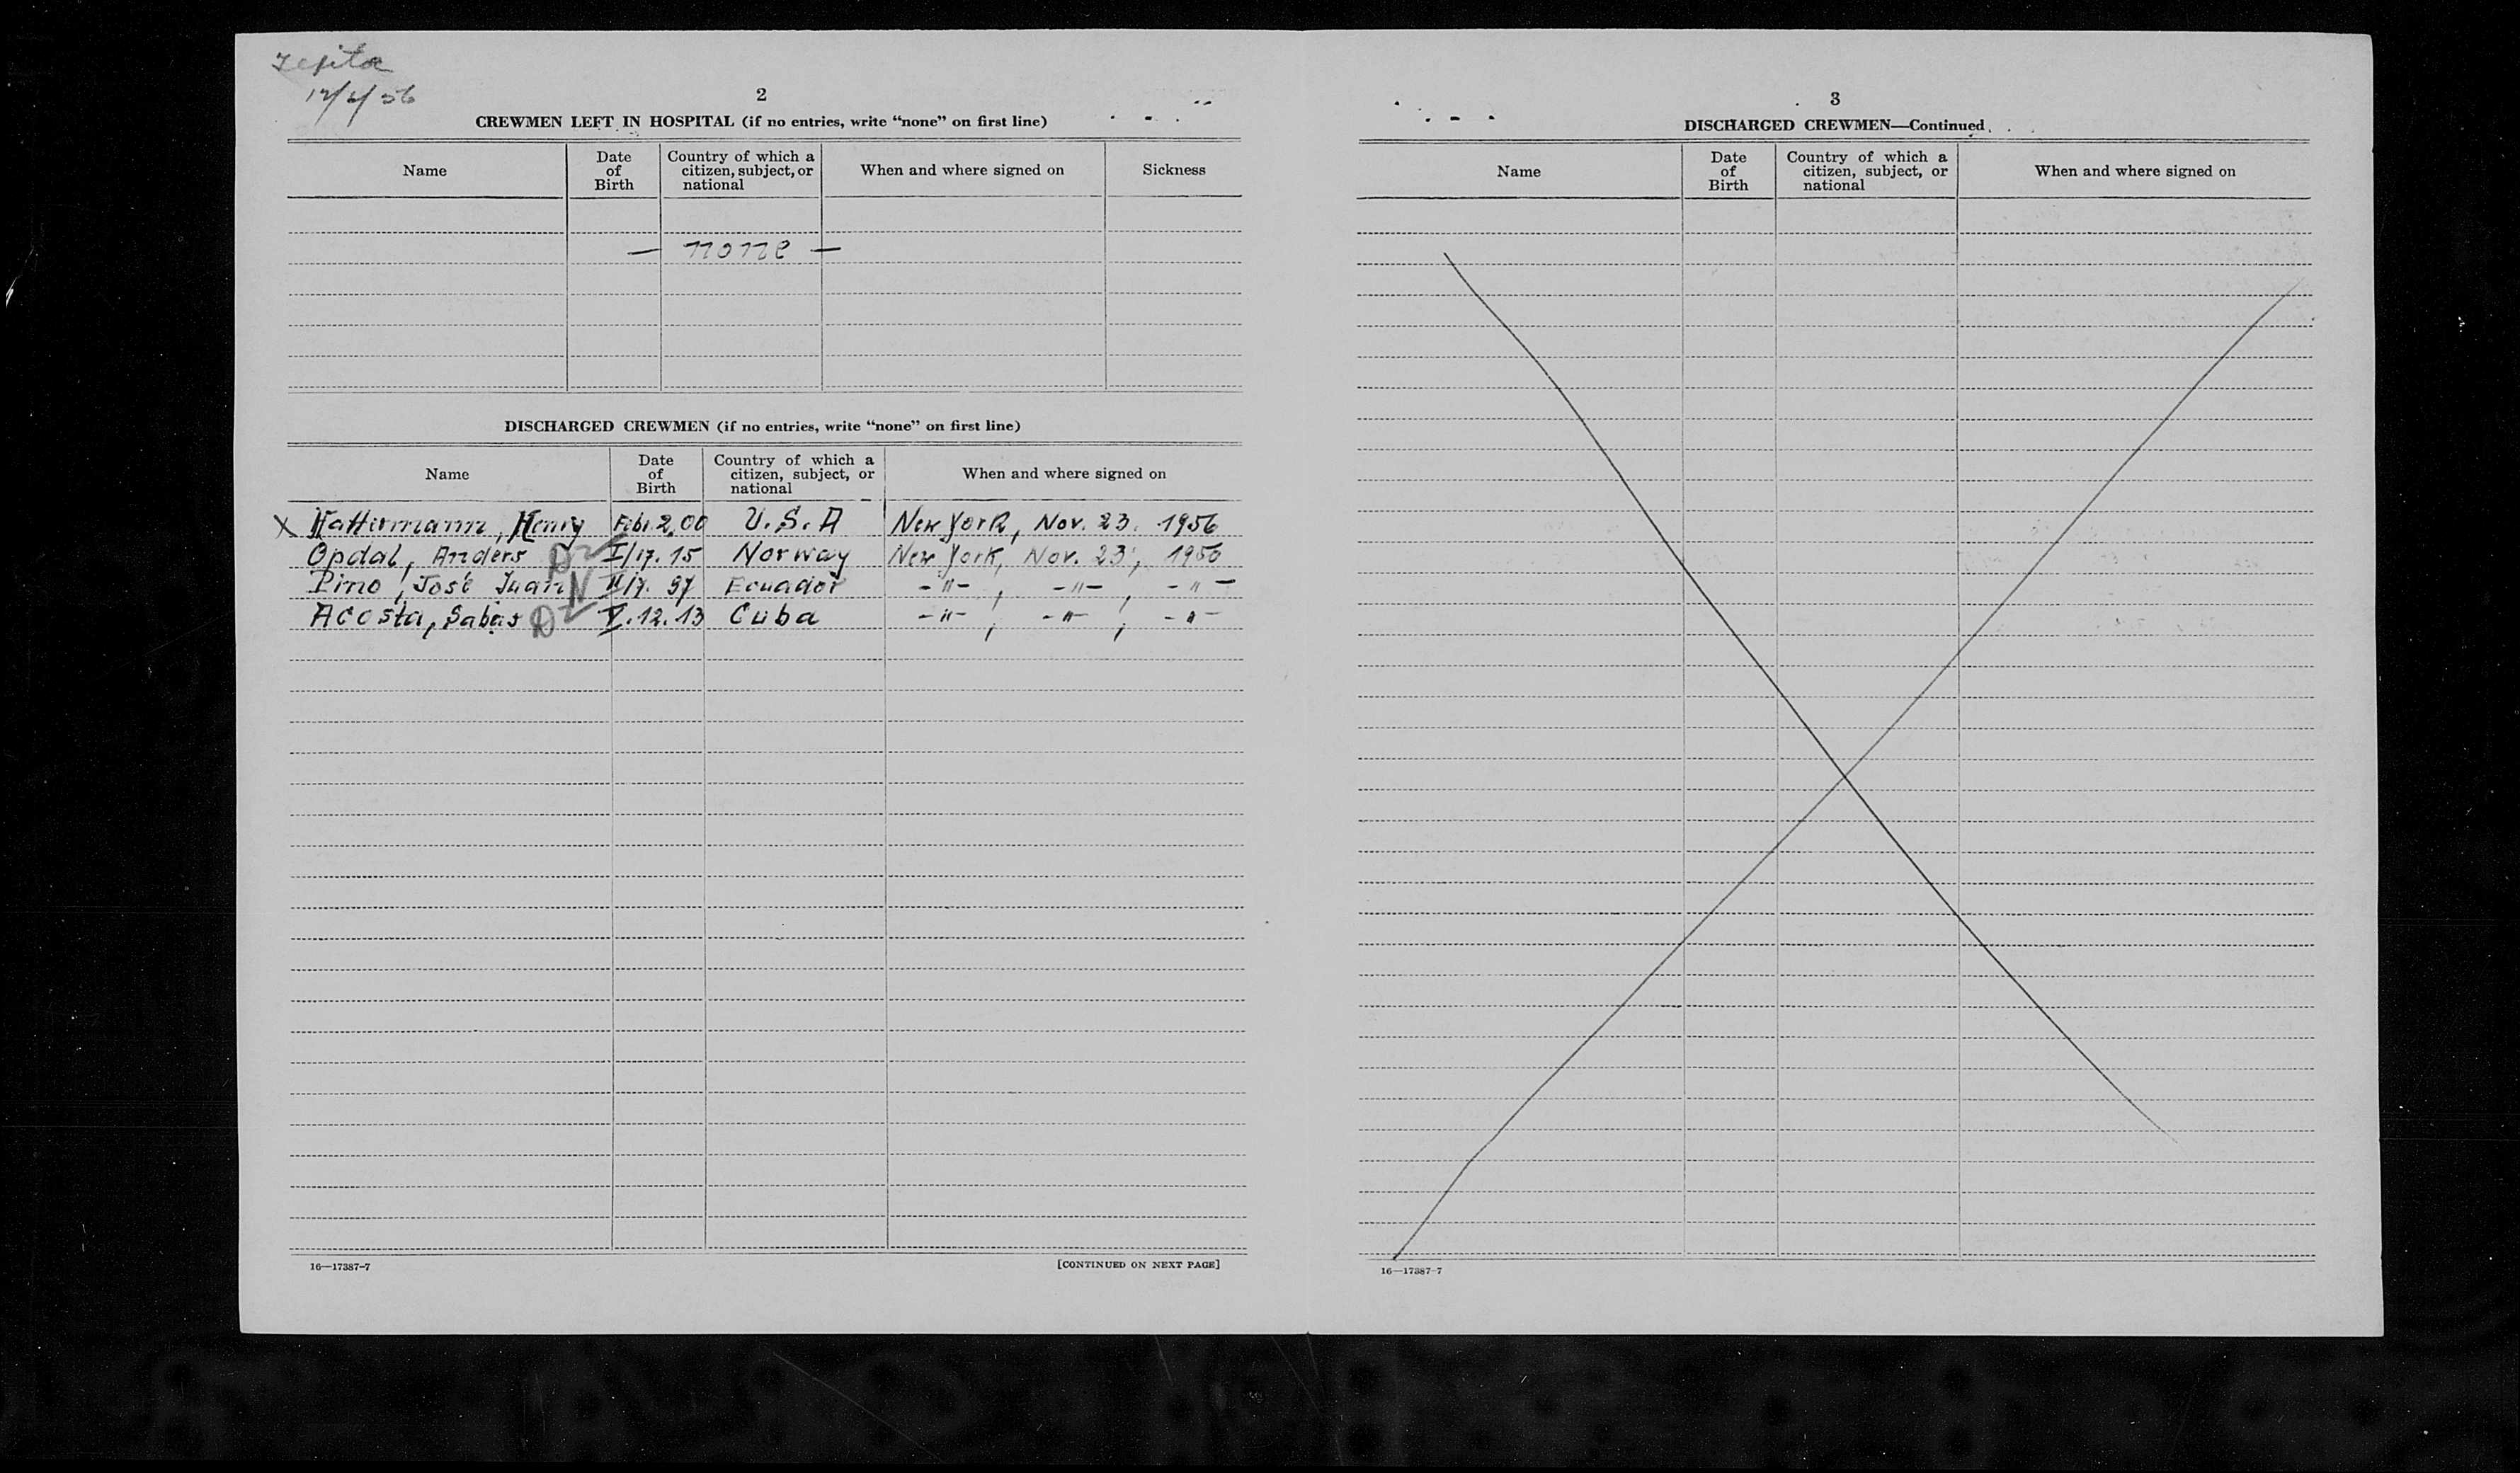 12/6/56
2
CREWMEN LEFT IN HOSPITAL (if no entries, write “none” on first line)
Name Date of Birth Country of which a citizen, subject, or national When and where signed on Sickness
— none —
DISCHARGED CREWMEN (if no entries, write “none” on first line)
Name Date of Birth Country of which a citizen, subject, or national When and where signed on
X Hattermann, Henry Feb. 2. 00 U.S.A New York, Nov. 23. 1956
Opdal, Anders D2 I/17. 15 Norway New York, Nov. 23, 1956
Pino, José Juan N II/7. 97 Ecuador -"-, -"-, -"-
Acosta, Sabas D2 V. 12. 13 Cuba -"-, -"-, -"-
16—17387-7 [CONTINUED ON NEXT PAGE]
3
DISCHARGED CREWMEN—Continued
Name Date of Birth Country of which a citizen, subject, or national When and where signed on
16—17387-7